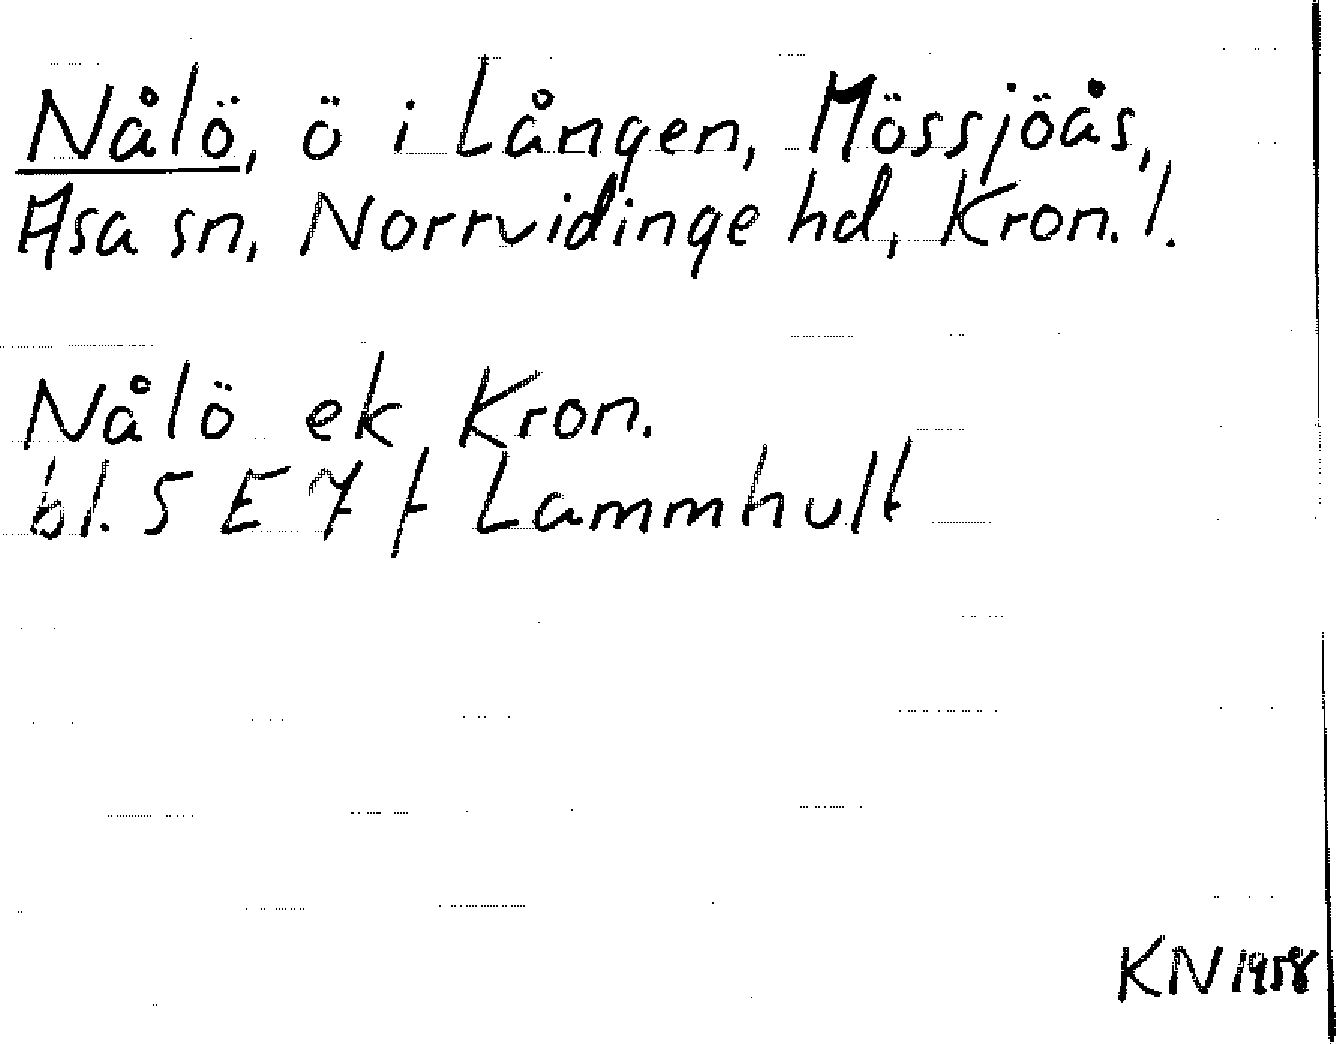 Nålö, ö i Lången, Mössjöås,
Asa sn, Norrvidinge hd, Kron. l.
Nålö ek Kron.
bl. 5 E 7 f Lammhult
KN 1958